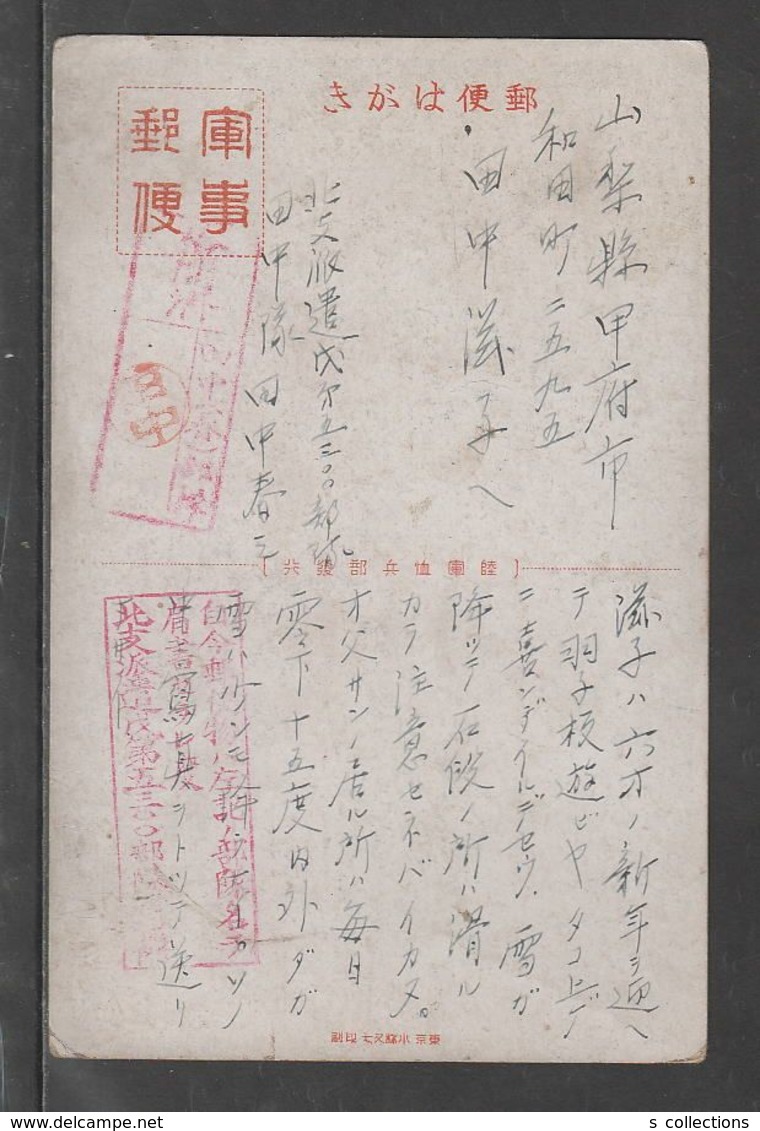 郵便はがき
軍事
郵便
山梨縣甲府市
和田町二五九五
田中滋子へ
北支派遣戊第五三〇〇部隊
田中隊田中春
陸軍恤兵部發行
滋子ハ六才ノ新年ヲ迎へ
テ羽子板遊ビヤタコ上ゲ
ニ喜ンデイルデセウ、雪ガ
降ツテ石段ノ所ハ滑ル
カラ注意セネバイカヌ。
オ父サンノ居ル所ハ毎日
零下十五度内外ダガ
雪ハ少シモ
送リ
自今郵便物ハ左記ノ部隊名ヲ
北支派遣戊第五三〇〇部隊
検閲済
田中
東京 小林又七印刷
s collections